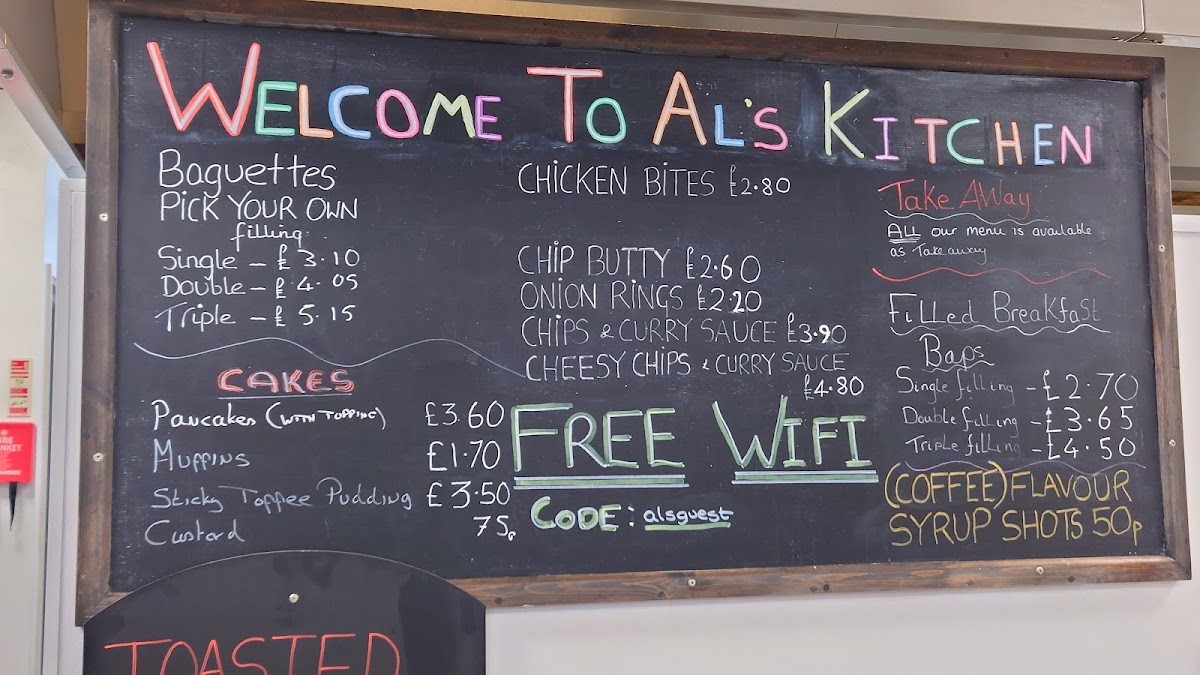 WELCOME TO AL'S KITCHEN
Baguettes
PICK YOUR OWN
filling
Single - £3.10
Double - £4.05
Triple - £5.15
CAKES
Pancakes (WITH TOPPING) £3.60
Muffins £1.70
Sticky Toffee Pudding £3.50
Custard 75p
CHICKEN BITES £2.80
CHIP BUTTY £2.60
ONION RINGS £2.20
CHIPS & CURRY SAUCE £3.90
CHEESY CHIPS & CURRY SAUCE
£4.80
FREE WIFI
CODE: alsguest
Take AWay
ALL our menu is available
as Takeaway
Filled Breakfast
Baps
Single filling - £2.70
Double filling - £3.65
Triple filling - £4.50
(COFFEE) FLAVOUR
SYRUP SHOTS 50p
TOASTED